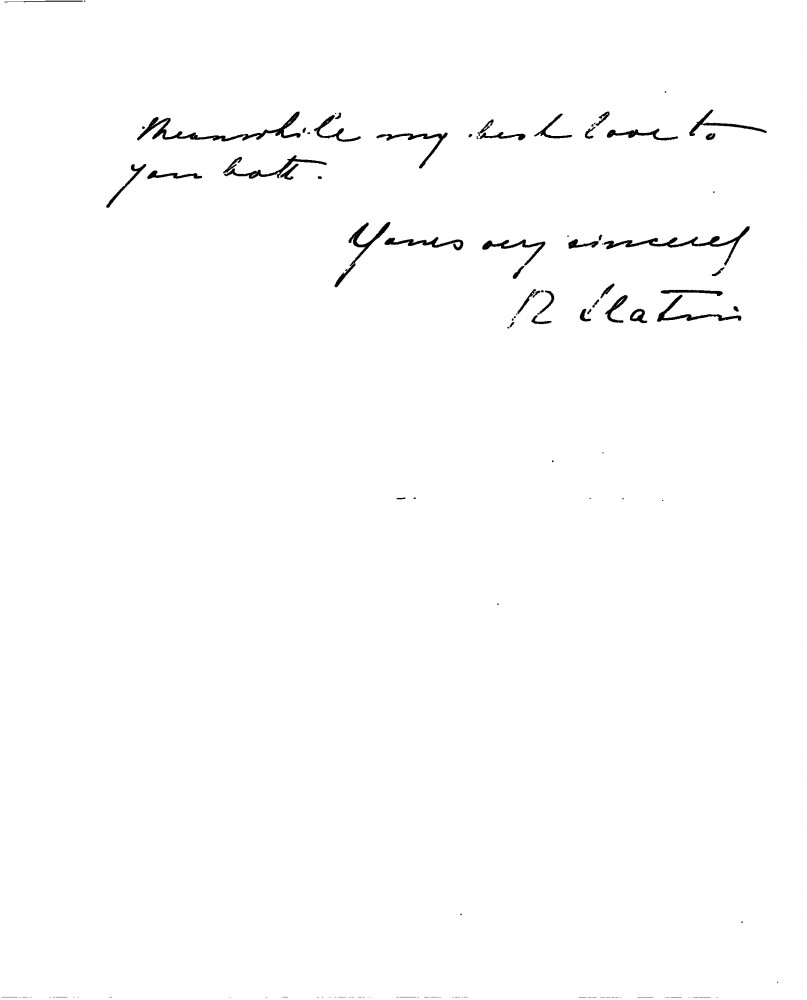 Meanwhile my best love to
you both.
Yours very sincerely
R Slatin